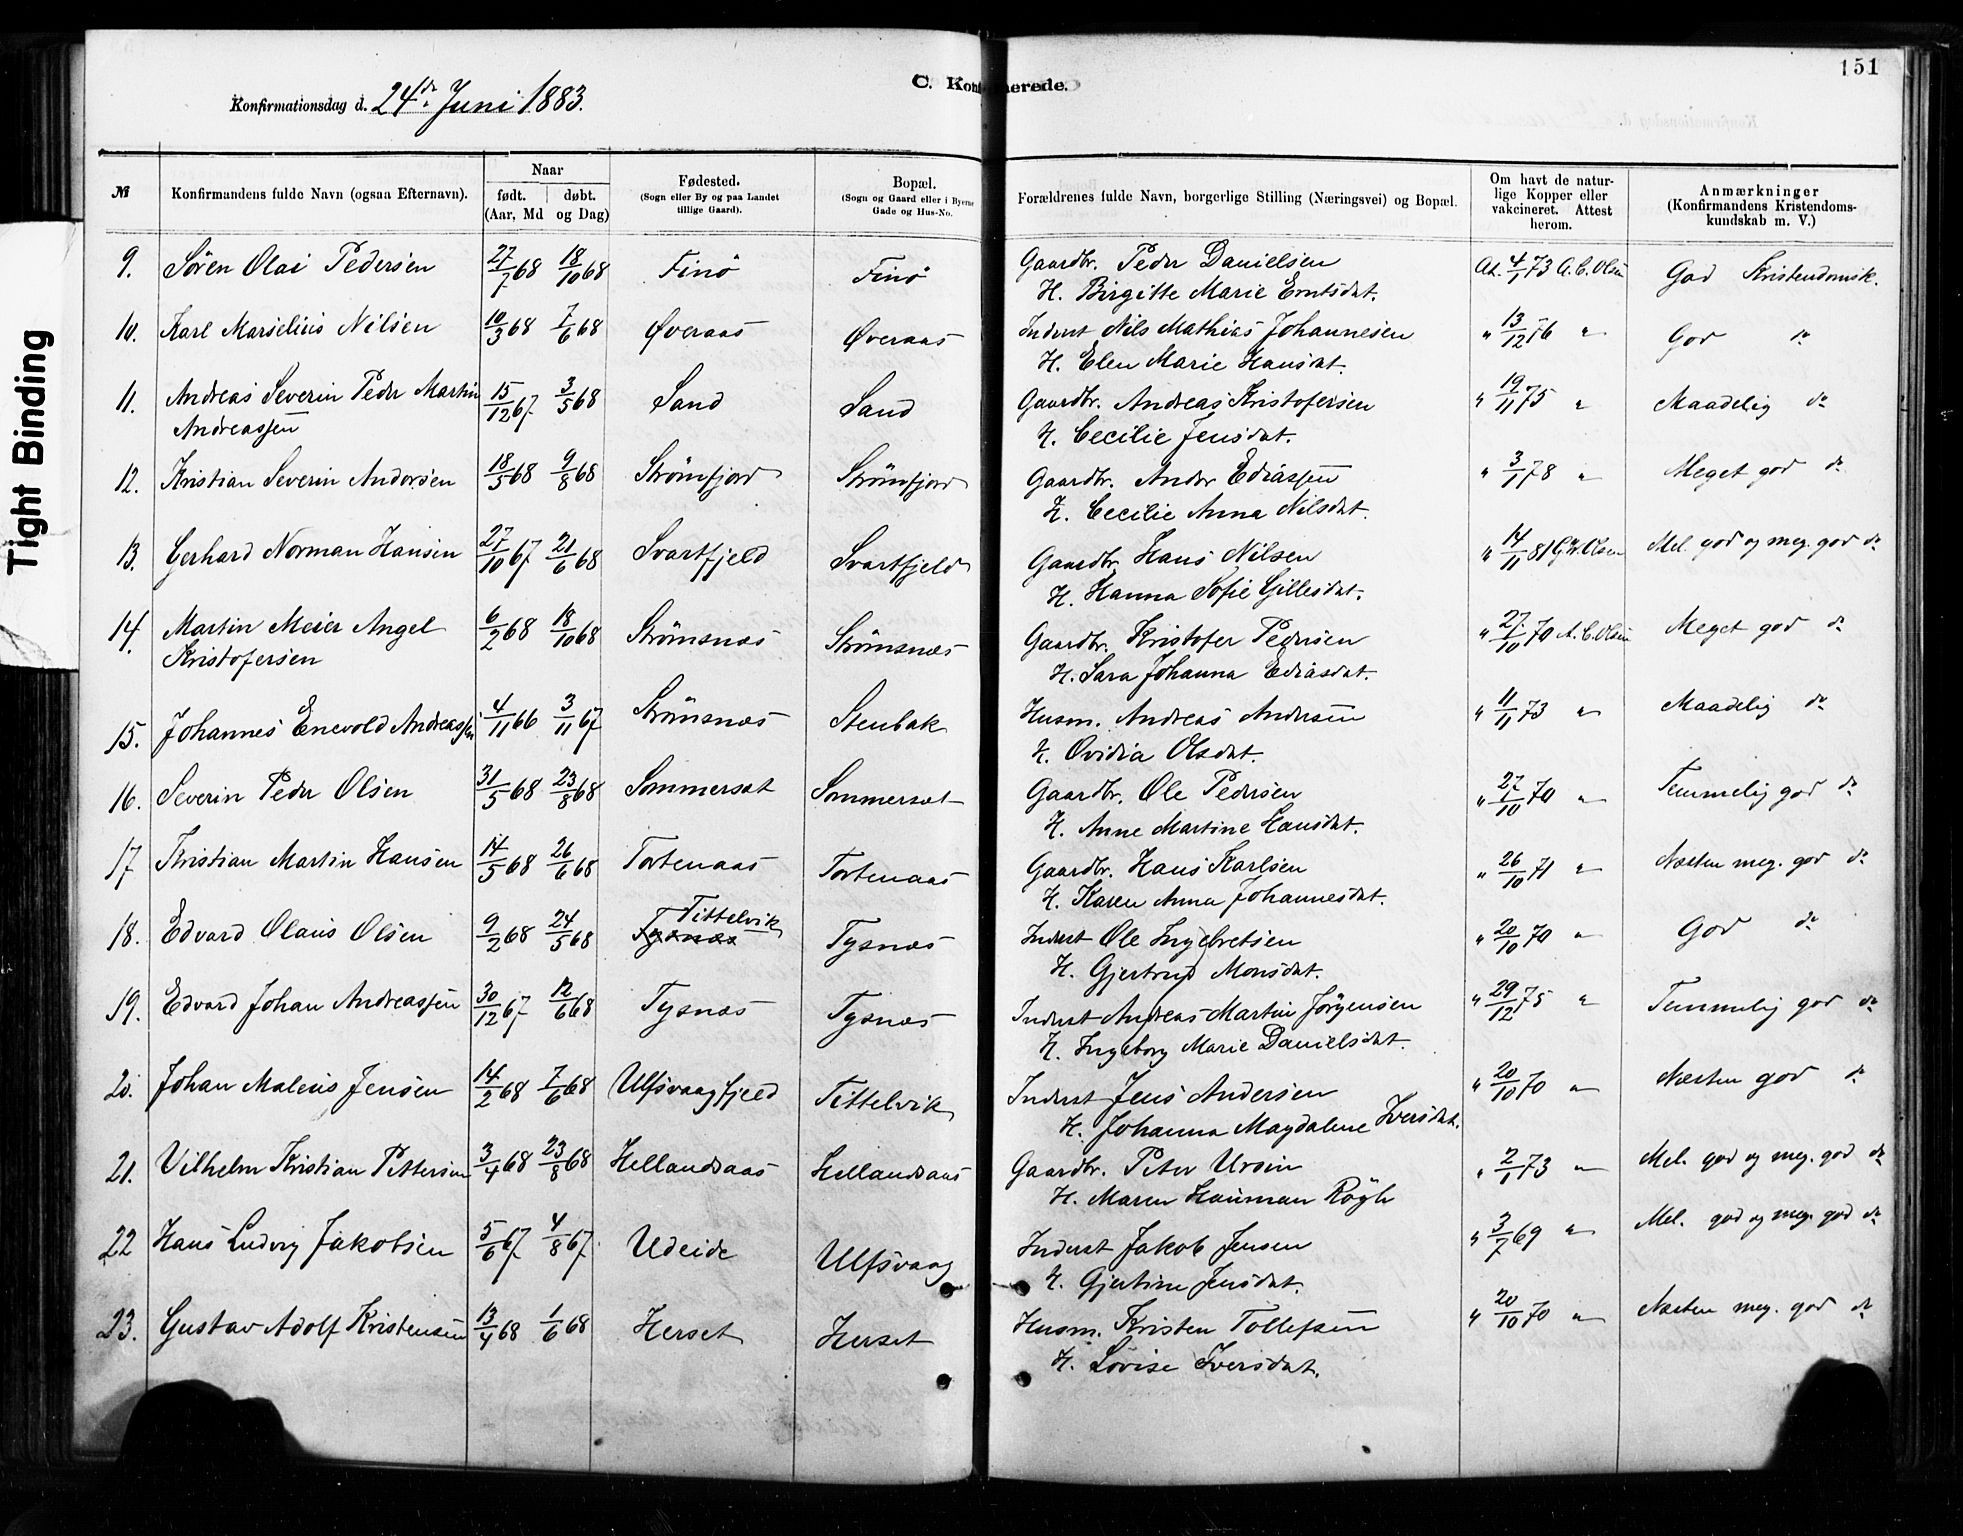 151
C. Konfirmerede.
Konfirmationsdag d. 24de Juni 1883.
Tight Binding
№ Konfirmandens fulde Navn (ogsaa Efternavn). Naar født. døbt. (Aar, Md og Dag) Fødested. (Sogn eller By og paa Landet tillige Gaard). Bopæl. (Sogn og Gaard eller i Byerne Gade og Hus-No. Forældrenes fulde Navn, borgerlige Stilling (Næringsvei) og Bopæl. Om havt de naturlige Kopper eller vakcineret. Attest herom. Anmærkninger (Konfirmandens Kristendomskundskab m. V.)
9. Sören Olai Pedersen 27/7 68 18/10 68 Finö Finö Gaardbr. Peder Danielsen At. 4/1 73 A. C. Olsen God Kristendomsk.
H. Birgitte Marie Erntsdat.
10. Karl Marselius Nilsen 10/3 68 7/6 68 Øveraas Øveraas Inderst Nils Mathias Johannesen " 13/12 76 " God do
H. Elen Marie Hansdat.
11. Andreas Severin Peder Martin 15/12 67 3/5 68 Sand Sand Gaardbr. Andreas Kristofersen " 19/11 75 " Maadelig do
Andreassen H. Cecilie Jensdat.
12. Kristian Severin Andersen 18/5 68 9/8 68 Strömfjord Strömfjord Gaardbr. Ander Ediassen " 3/1 78 " Meget god do
H. Cecilie Anna Nilsdat.
13. Gerhard Norman Hansen 27/10 67 21/6 68 Svartfjeld Svartfjeld Gaardbr. Hans Nilsen " 14/11 81 G. W. Olsen Mel. god og meg. god do
H. Hanna Sofie Gillesdat.
14. Martin Meier Angel 6/2 68 18/10 68 Strömsnæs Strömsnæs Gaardbr. Kristofer Pedersen " 27/10 70 A. C. Olsen Meget god do
Kristofersen H. Sara Johanna Ediasdat.
15. Johannes Enevold Andreassen 4/11 66 3/11 67 Strömsnæs Stenbak Husm. Andreas Andersen " 11/11 73 " Maadelig do
H. Ovidia Olsdat.
16. Severin Peder Olsen 31/5 68 23/8 68 Sommersæt Sommersæt Gaardbr. Ole Pedersen " 27/10 70 " Temmelig god do
H. Anne Martine Hansdat.
17 Kristian Martin Hansen 14/5 68 26/6 68 Tortenaas Tortenaas Gaardbr. Hans Karlsen " 26/10 71 " Næsten meg. god do
H. Karen Anna Johannesdat.
18. Edvard Olaus Olsen 9/2 68 24/5 68 Tysnæs Tittelvik Tysnæs Inderst Ole Ingebretsen " 20/10 70 " God do
H. Gjertrud Monsdat.
19. Edvard Johan Andreassen 30/12 67 12/6 68 Tysnæs Tysnæs Inderst Andreas Martin Jörgensen " 29/12 75 " Temmelig god do
H. Ingeborg Marie Danielsdat.
20. Johan Maleus Jensen 14/2 68 7/6 68 Ulfsvaagfjeld Tittelvik Inderst Jens Andersen " 20/10 70 " Næsten god do
H. Johanna Magdalene Iversdat.
21. Vilhelm Kristian Pettersen 3/4 68 23/8 68 Hellandsaas Hellandsaas Gaardbr. Peter Ursin " 2/1 73 " Mel. god og meg. god do
H. Maren Hauman Rögh
22 Hans Ludvig Jakobsen 5/6 67 4/8 67. Udeide Ulfsvaag Inderst Jakob Jensen " 3/7 69 " Mel. god og meg. god do
H. Gjertine Jensdat.
23. Gustav Adolf Kristensen 13/4 68 1/6 68 Herset Herset Husm. Kristen Tollefsen " 20/10 70 " Næsten meg. god do
H. Lovise Iversdat.